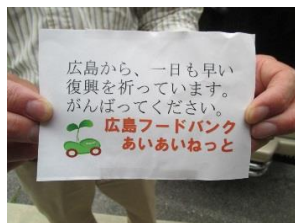 広島から、一日も早い
復興を祈っています。
がんばってください。
広島フードバンク
あいあいねっと